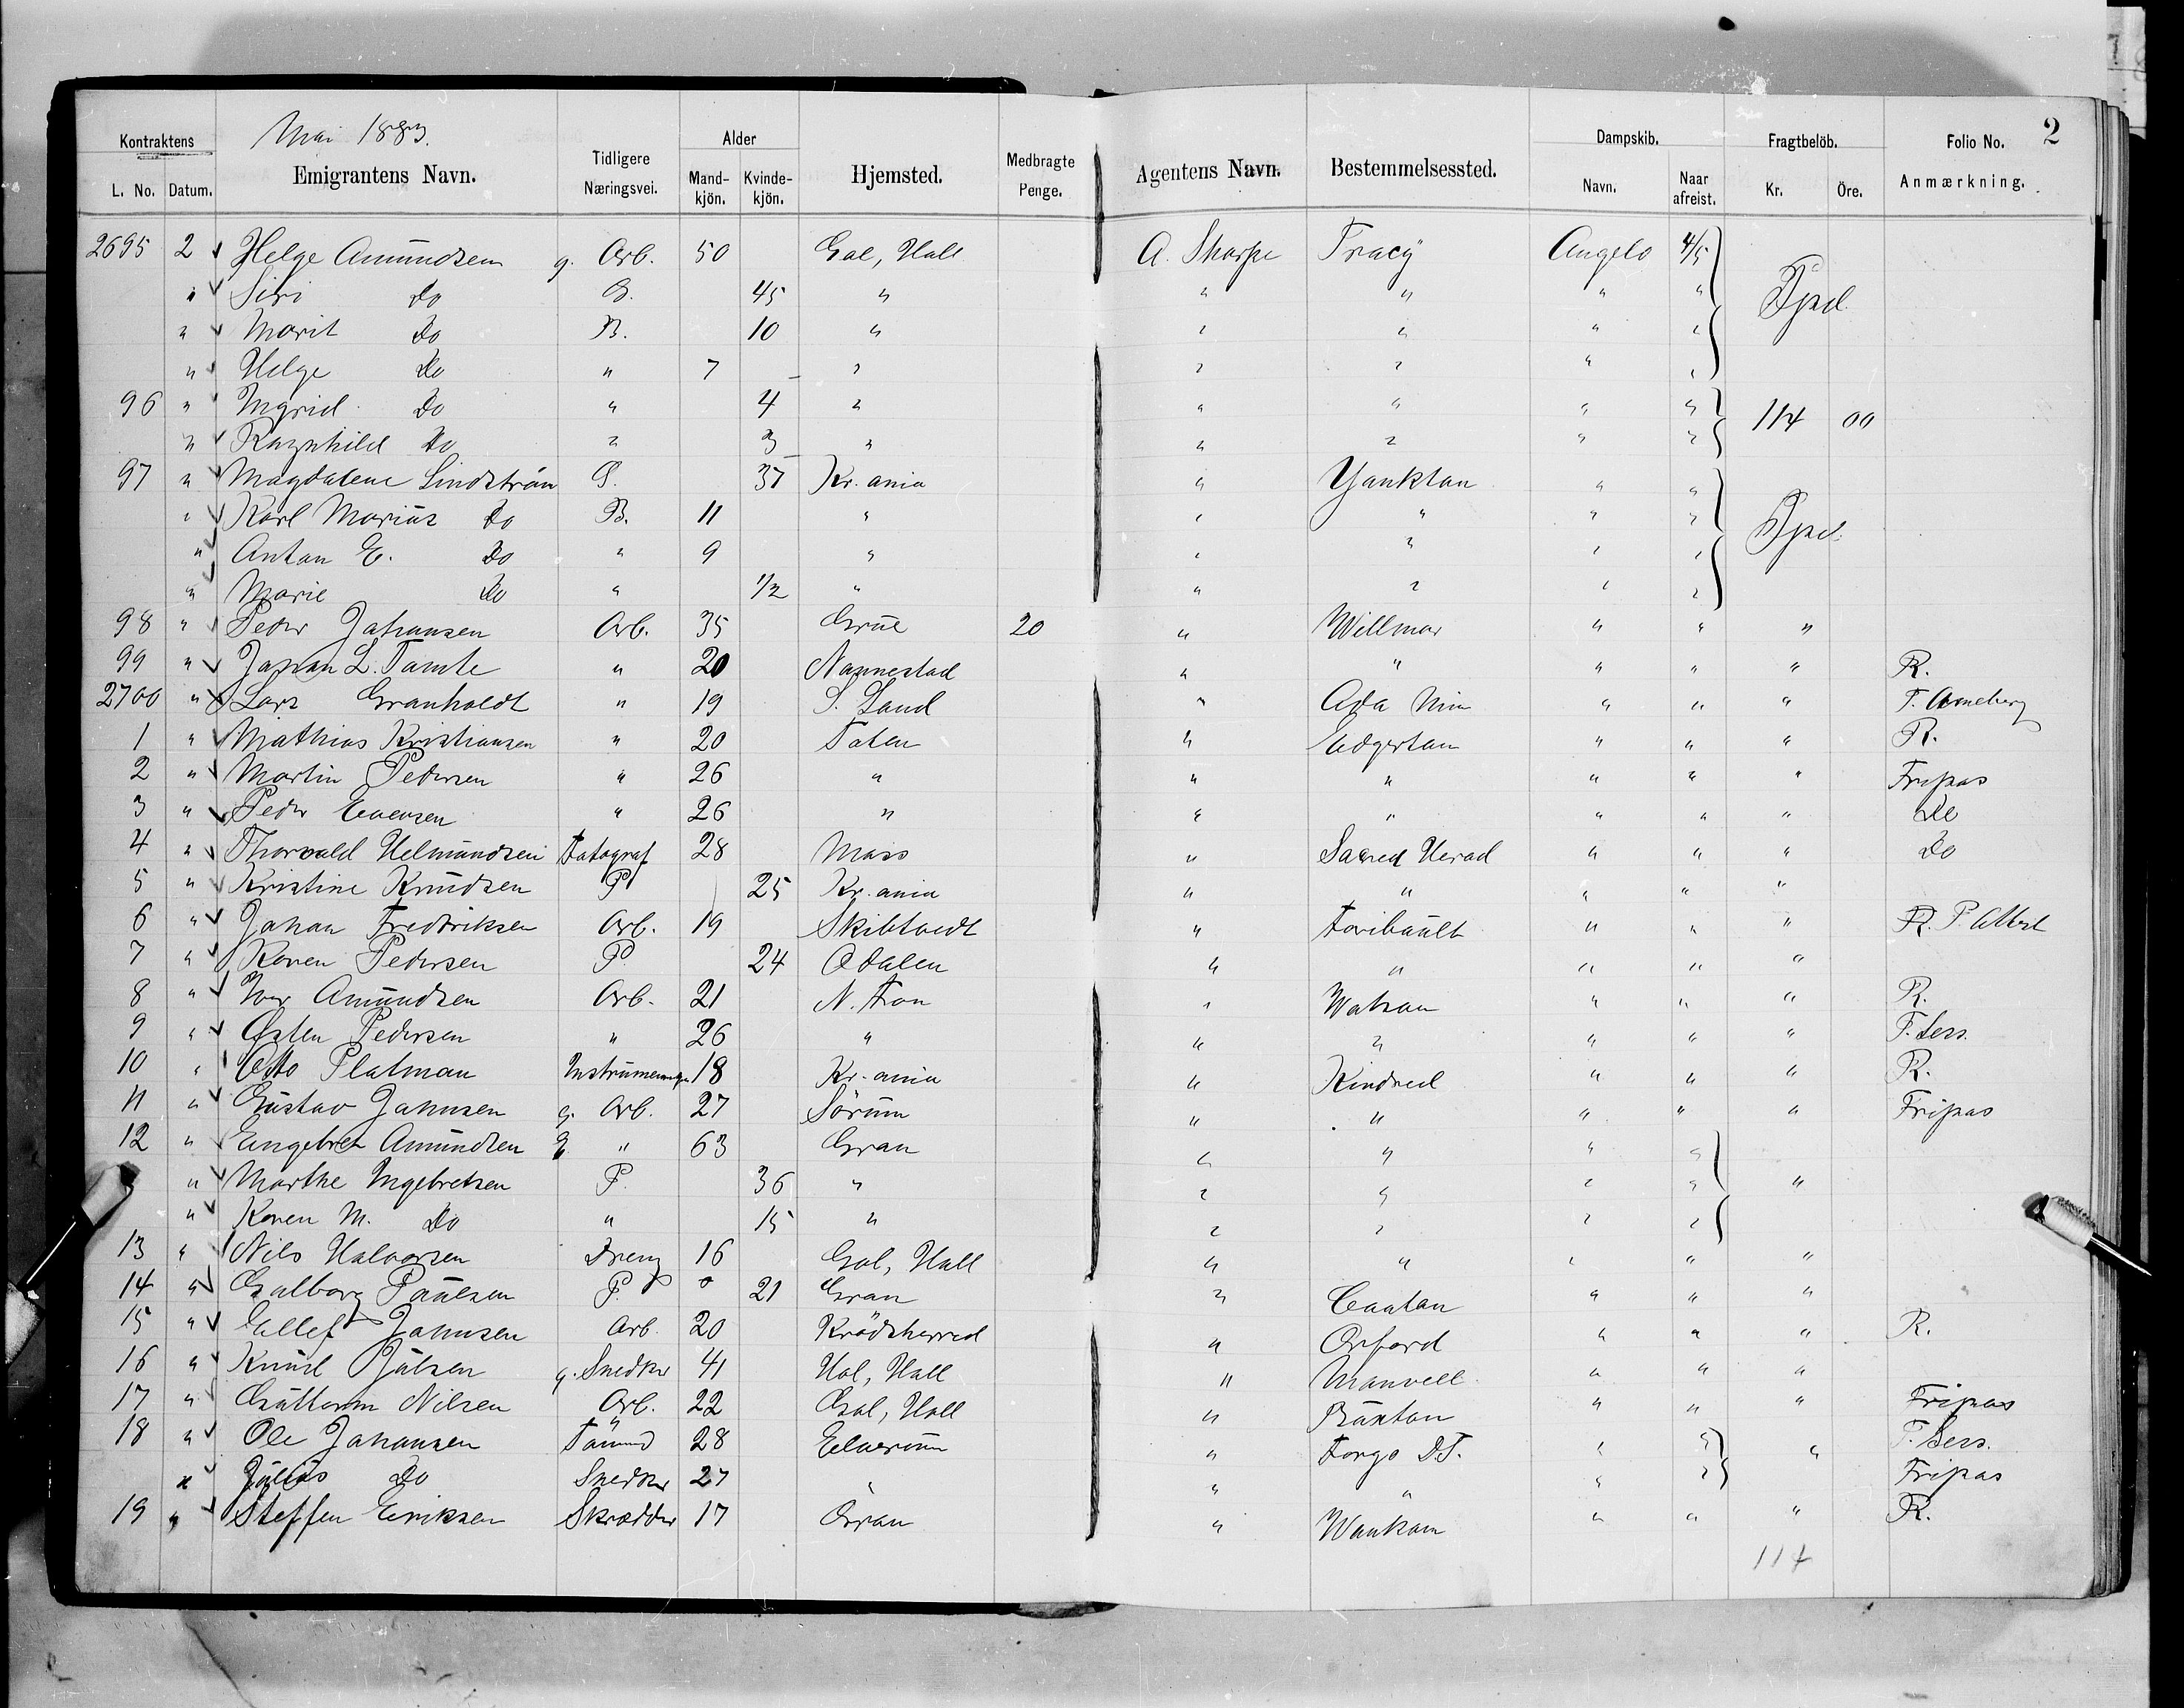 Mai 1883.
2
Kontraktens L. No. Datum. Emigrantens Navn. Tidligere Næringsvei. Alder Mandkjön. Kvindekjön. Hjemsted. Medbragte Penge. Agentens Navn. Bestemmelsessted. Dampskib. Navn. Naar afreist. Fragtbelöb. Kr. Öre. Folio No. Anmærkning.
2695 2 Helge Amundsen g. Arb. 50 Gol, Hall A. Sharpe Tracy Angelo 4/5
" Siri Do G. 45 " " " " "
" Marit Do B. 10 " " " " "
" Helge Do " 7 " " " " "
96 " Ingrid Do " 4 " " " " " 114 00
" Ragnhild Do " 3 " " " " "
97 " Magdalene Lindström G. 37 Kr.ania " Yankton " "
" Karl Marius Do B. 11 " " " " "
" Anton E. Do " 9 " " " " "
" Marie Do " 1/2 " " " " "
98 " Peder Johansen Arb. 35 Grue 20 " Willmar " " "
99 " Johan L. Tamte " 20 Nannestad " " " " " R.
2700 " Lars Granholdt " 19 S. Land " Ada Min " " " F. Arneberg
1 " Mathias Kristiansen " 20 Toten " Edgerton " " " R.
2 " Martin Pedersen " 26 " " " " " " Fripas
3 " Peder Evensen " 26 " " " " " " Do
4 " Thorvald Helmundsen Fotograf 28 Moss " Sacred Herad " " " Do
5 " Kristine Knudsen P 25 Kr.ania " " " " "
6 " Johan Fredriksen Arb. 19 Skibtvedt " Faribault " " " R.
7 " Karen Pedersen P 24 Odalen " " " " "
8 " Iver Amundsen Arb. 21 N. Fron " Watson " " " R.
9 " Østen Pedersen " 26 " " " " " "
10 " Otto Platman 18 Kr.ania " Kindred " " " R.
11 " Gustav Johnsen g. Arb. 27 Sörum " " " " " Fripas
12 " Engebret Amundsen E " 63 Gran " " " "
" Marthe Ingebretsen P. 36 " " " " " "
" Karen M. Do " 15 " " " " "
13 " Nils Halvorsen Dreng 16 Gol, Hall " " " " "
14 " Golborg Paulsen P. 21 Gran " Canton " " "
15 " Ellef Johnsen Arb. 20 Krödsherred " Oxford " " " R.
16 " Knud Julsen g. Snedker 41 Hol, Hall " Manvell " " "
17 " Guttorm Nilsen Arb. 22 Gol, Hall " Buxton " " " Fripas
18 " Ole Johansen 28 Elverum " Fargo D.T. " " "
" Julius Do Snedker 27 " " " " " Fripas
19 " Steffen Eriksen Skrædder 17 Gran " Waukon " " " R.
114